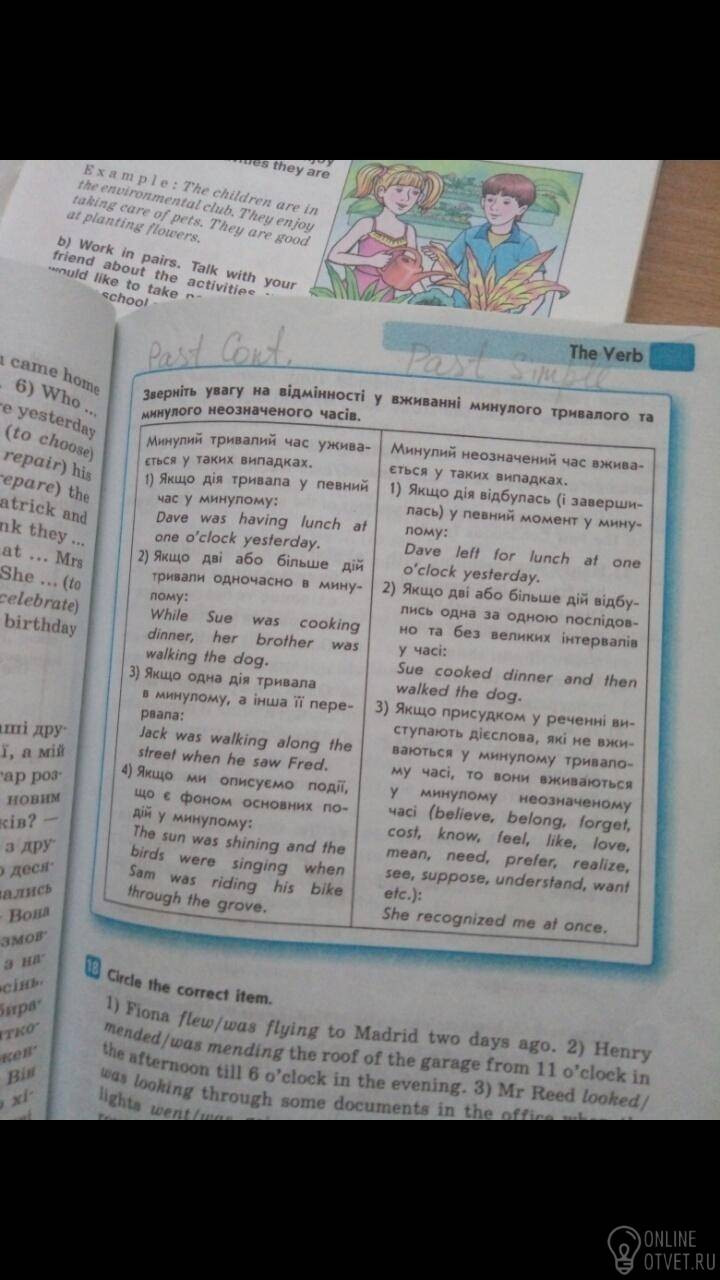 they are
Example: The children are in
the environmental club. They enjoy
taking care of pets. They are good
at planting flowers.
b) Work in pairs. Talk with your
friend about the activities
would like to take
school
Past Cont.
Past Simple
The Verb
came home
6) Who ...
yesterday
(to choose)
repair) his
repare) the
atrick and
nk they ...
at ... Mrs
She ... (to
celebrate)
birthday
Зверніть увагу на відмінності у вживанні минулого тривалого та
минулого неозначеного часів.
Минулий тривалий час ужива-
ється у таких випадках.
1) Якщо дія тривала у певний
час у минулому:
Dave was having lunch at
one o'clock yesterday.
2) Якщо дві або більше дій
тривали одночасно в мину-
лому:
While Sue was cooking
dinner, her brother was
walking the dog.
3) Якщо одна дія тривала
в минулому, а інша її пере-
рвала:
Jack was walking along the
street when he saw Fred.
4) Якщо ми описуємо події,
що є фоном основних по-
дій у минулому:
The sun was shining and the
birds were singing when
Sam was riding his bike
through the grove.
Минулий неозначений час вжива-
ється у таких випадках.
1) Якщо дія відбулась (і заверши-
лась) у певний момент у мину-
лому:
Dave left for lunch at one
o'clock yesterday.
2) Якщо дві або більше дій відбу-
лись одна за одною послідов-
но та без великих інтервалів
у часі:
Sue cooked dinner and then
walked the dog.
3) Якщо присудком у реченні ви-
ступають дієслова, які не вжи-
ваються у минулому тривало-
му часі, то вони вживаються
у минулому неозначеному
часі (believe, belong, forget,
cost, know, feel, like, love,
mean, need, prefer, realize,
see, suppose, understand, want
etc.):
She recognized me at once.
18 Circle the correct item.
1) Fiona flew/was flying to Madrid two days ago. 2) Henry
mended/was mending the roof of the garage from 11 o'clock in
the afternoon till 6 o'clock in the evening. 3) Mr Reed looked/
was looking through some documents in the office when the
lights went/was
ONLINE
OTVET.RU